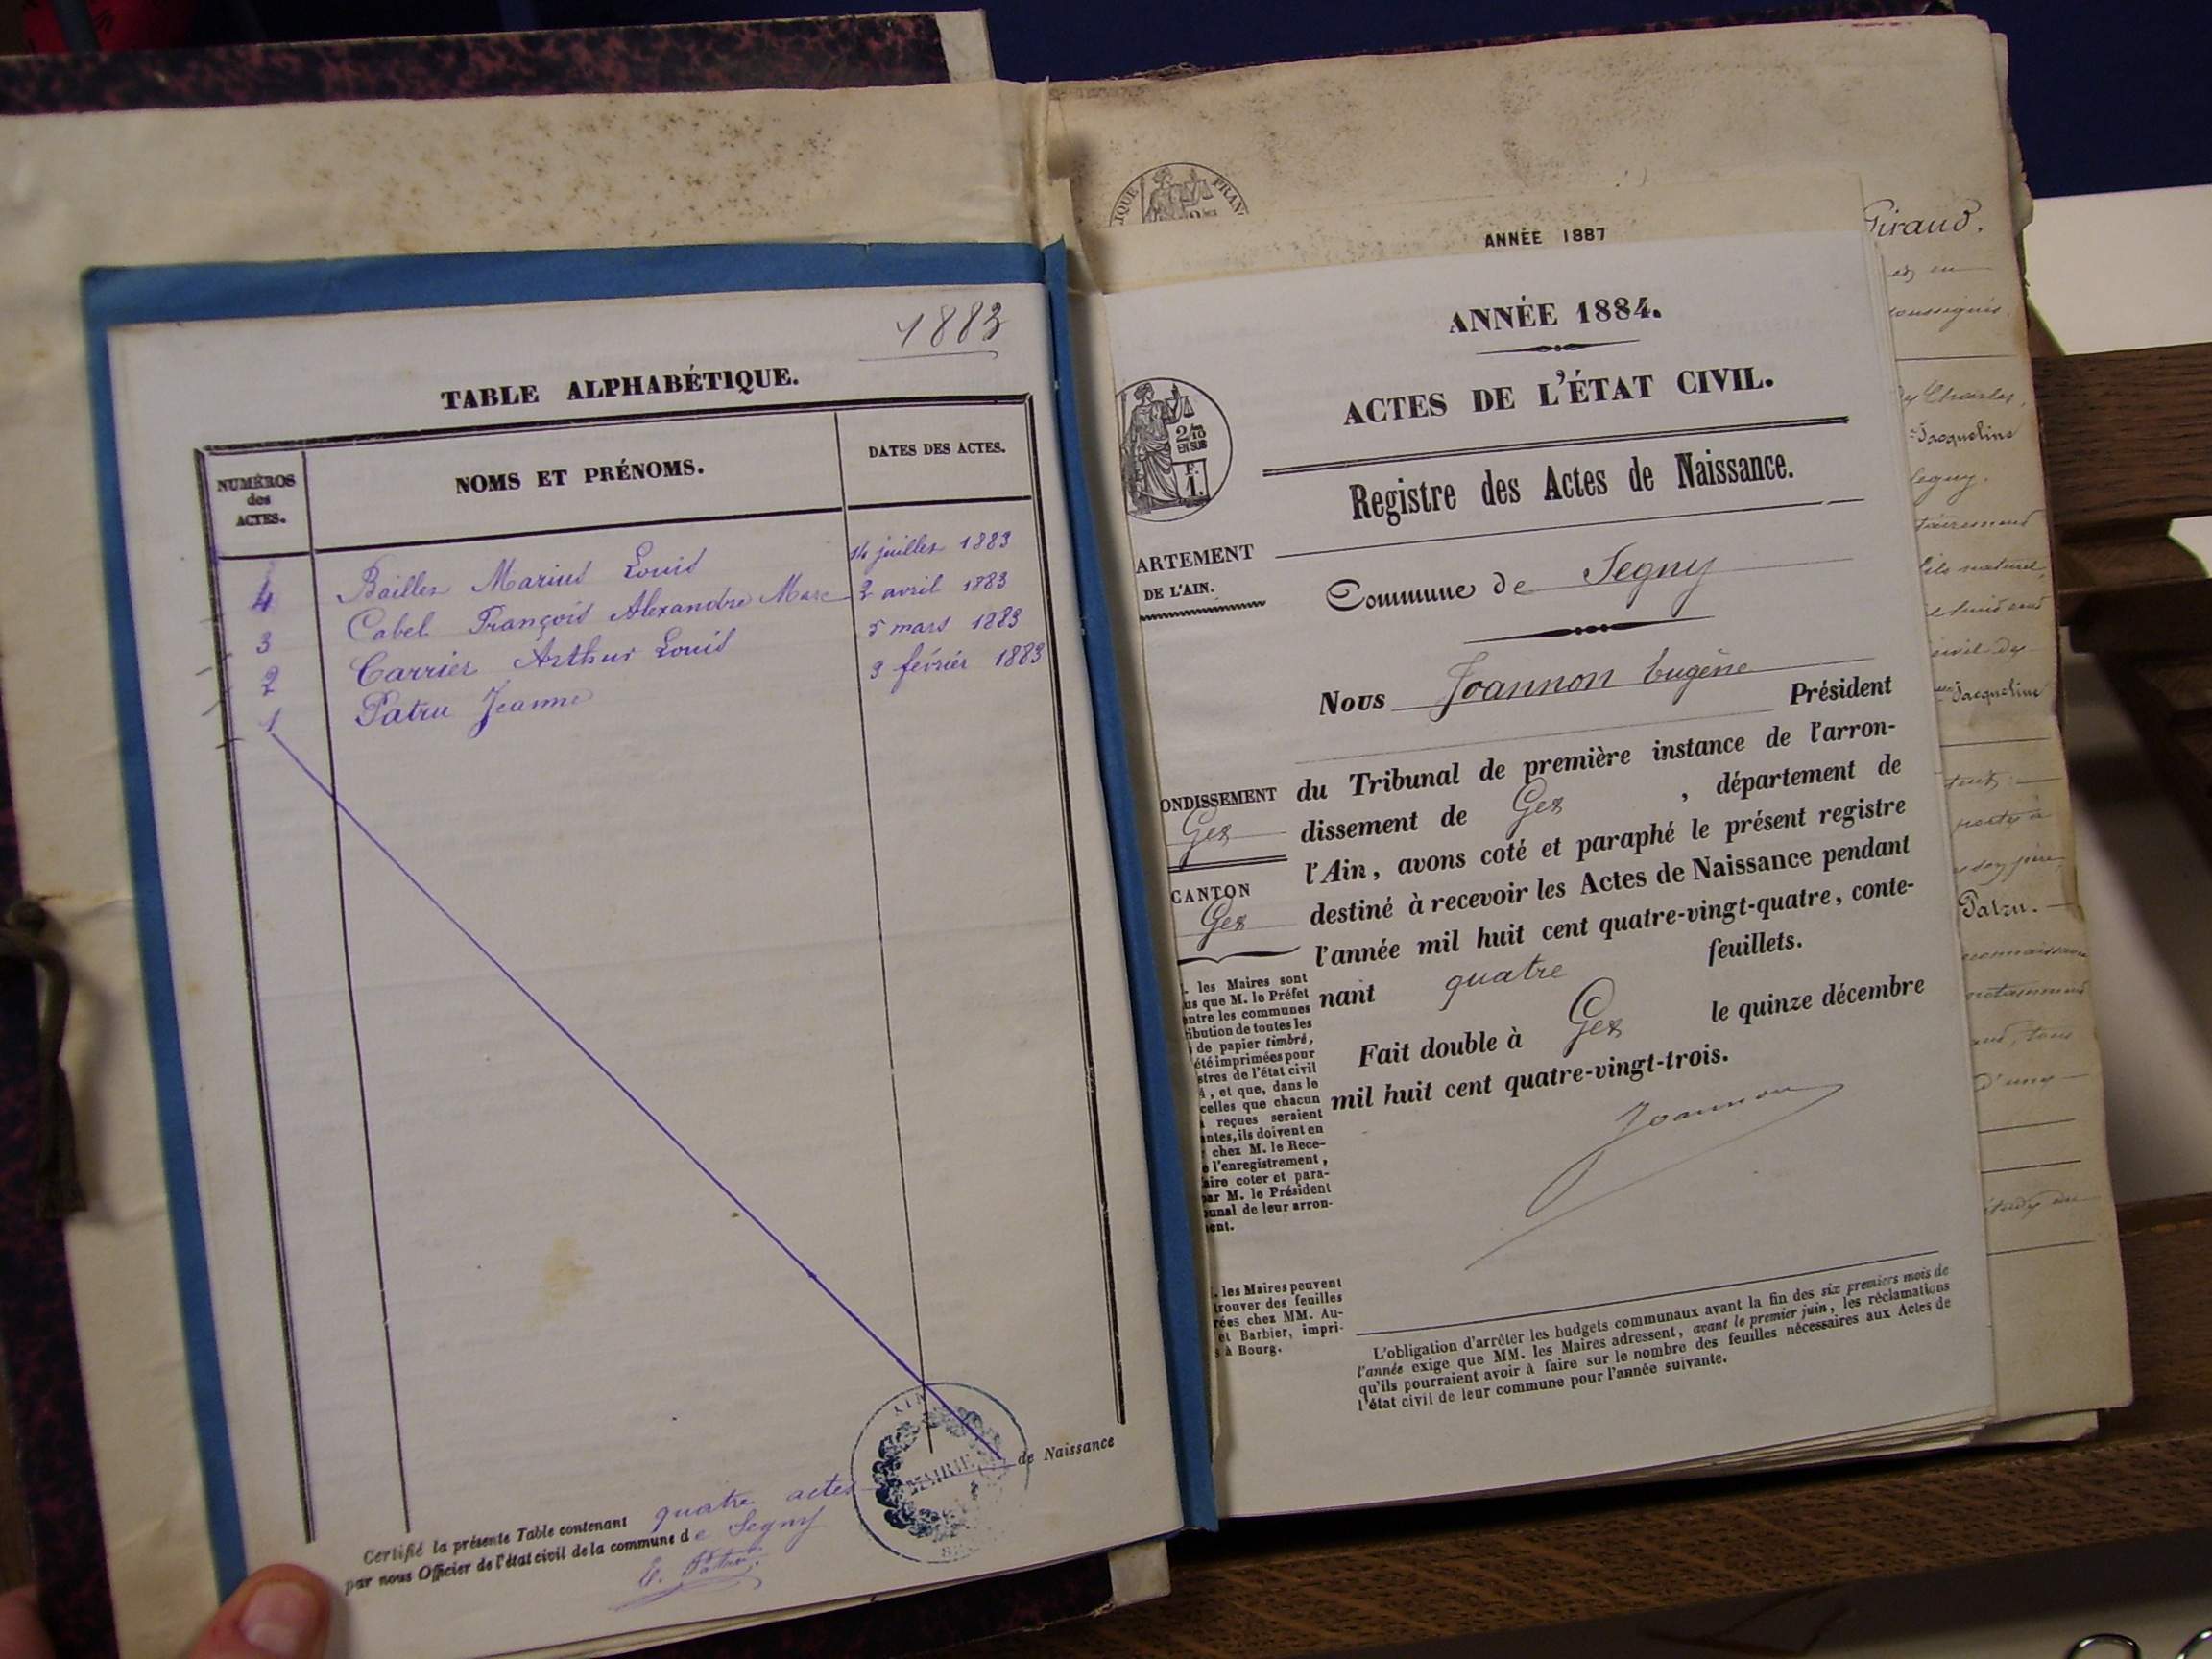 1883
TABLE ALPHABÉTIQUE.
NUMÉROS
des
ACTES.
NOMS ET PRÉNOMS.
DATES DES ACTES.
4 Bailler Marius Louis 14 juillet 1883
3 Cabel François Alexandre Marc 2 avril 1883
2 Carrier Arthur Louis 5 mars 1883
1 Patru Jeanne 3 février 1883
Certifié la présente Table contenant quatre actes de Naissance
par nous Officier de l'état civil de la commune de Segny
MAIRIE
IQUE FRAN
ANNÉE 1887
ANNÉE 1884.
ACTES DE L'ÉTAT CIVIL.
2/10
EN SUS
F.
1.
Registre des Actes de Naissance.
ARTEMENT
DE L'AIN.
Commune de Segny
Nous Joannon Eugène Président
du Tribunal de première instance de l'arron-
dissement de Gex, département de
l'Ain, avons coté et paraphé le présent registre
destiné à recevoir les Actes de Naissance pendant
l'année mil huit cent quatre-vingt-quatre, conte-
nant quatre feuillets.
Fait double à Gex le quinze décembre
mil huit cent quatre-vingt-trois.
Joannon
ONDISSEMENT
Gex
CANTON
Gex
. les Maires sont
us que M. le Préfet
entre les communes
ibution de toutes les
de papier timbré,
été imprimées pour
stres de l'état civil
4, et que, dans le
celles que chacun
reçues seraient
antes, ils doivent en
chez M. le Rece-
e l'enregistrement,
aire coter et para-
par M. le Président
bunal de leur arron-
ent.
. les Maires peuvent
trouver des feuilles
rées chez MM. Au-
et Barbier, impri-
s à Bourg.
L'obligation d'arrêter les budgets communaux avant la fin des six premiers mois de
l'année exige que MM. les Maires adressent, avant le premier juin, les réclamations
qu'ils pourraient avoir à faire sur le nombre des feuilles nécessaires aux Actes de
l'état civil de leur commune pour l'année suivante.
Giraud.
soussignés.
Charles,
Jacqueline
fils naturel,
civil de
Jacqueline
Patru.